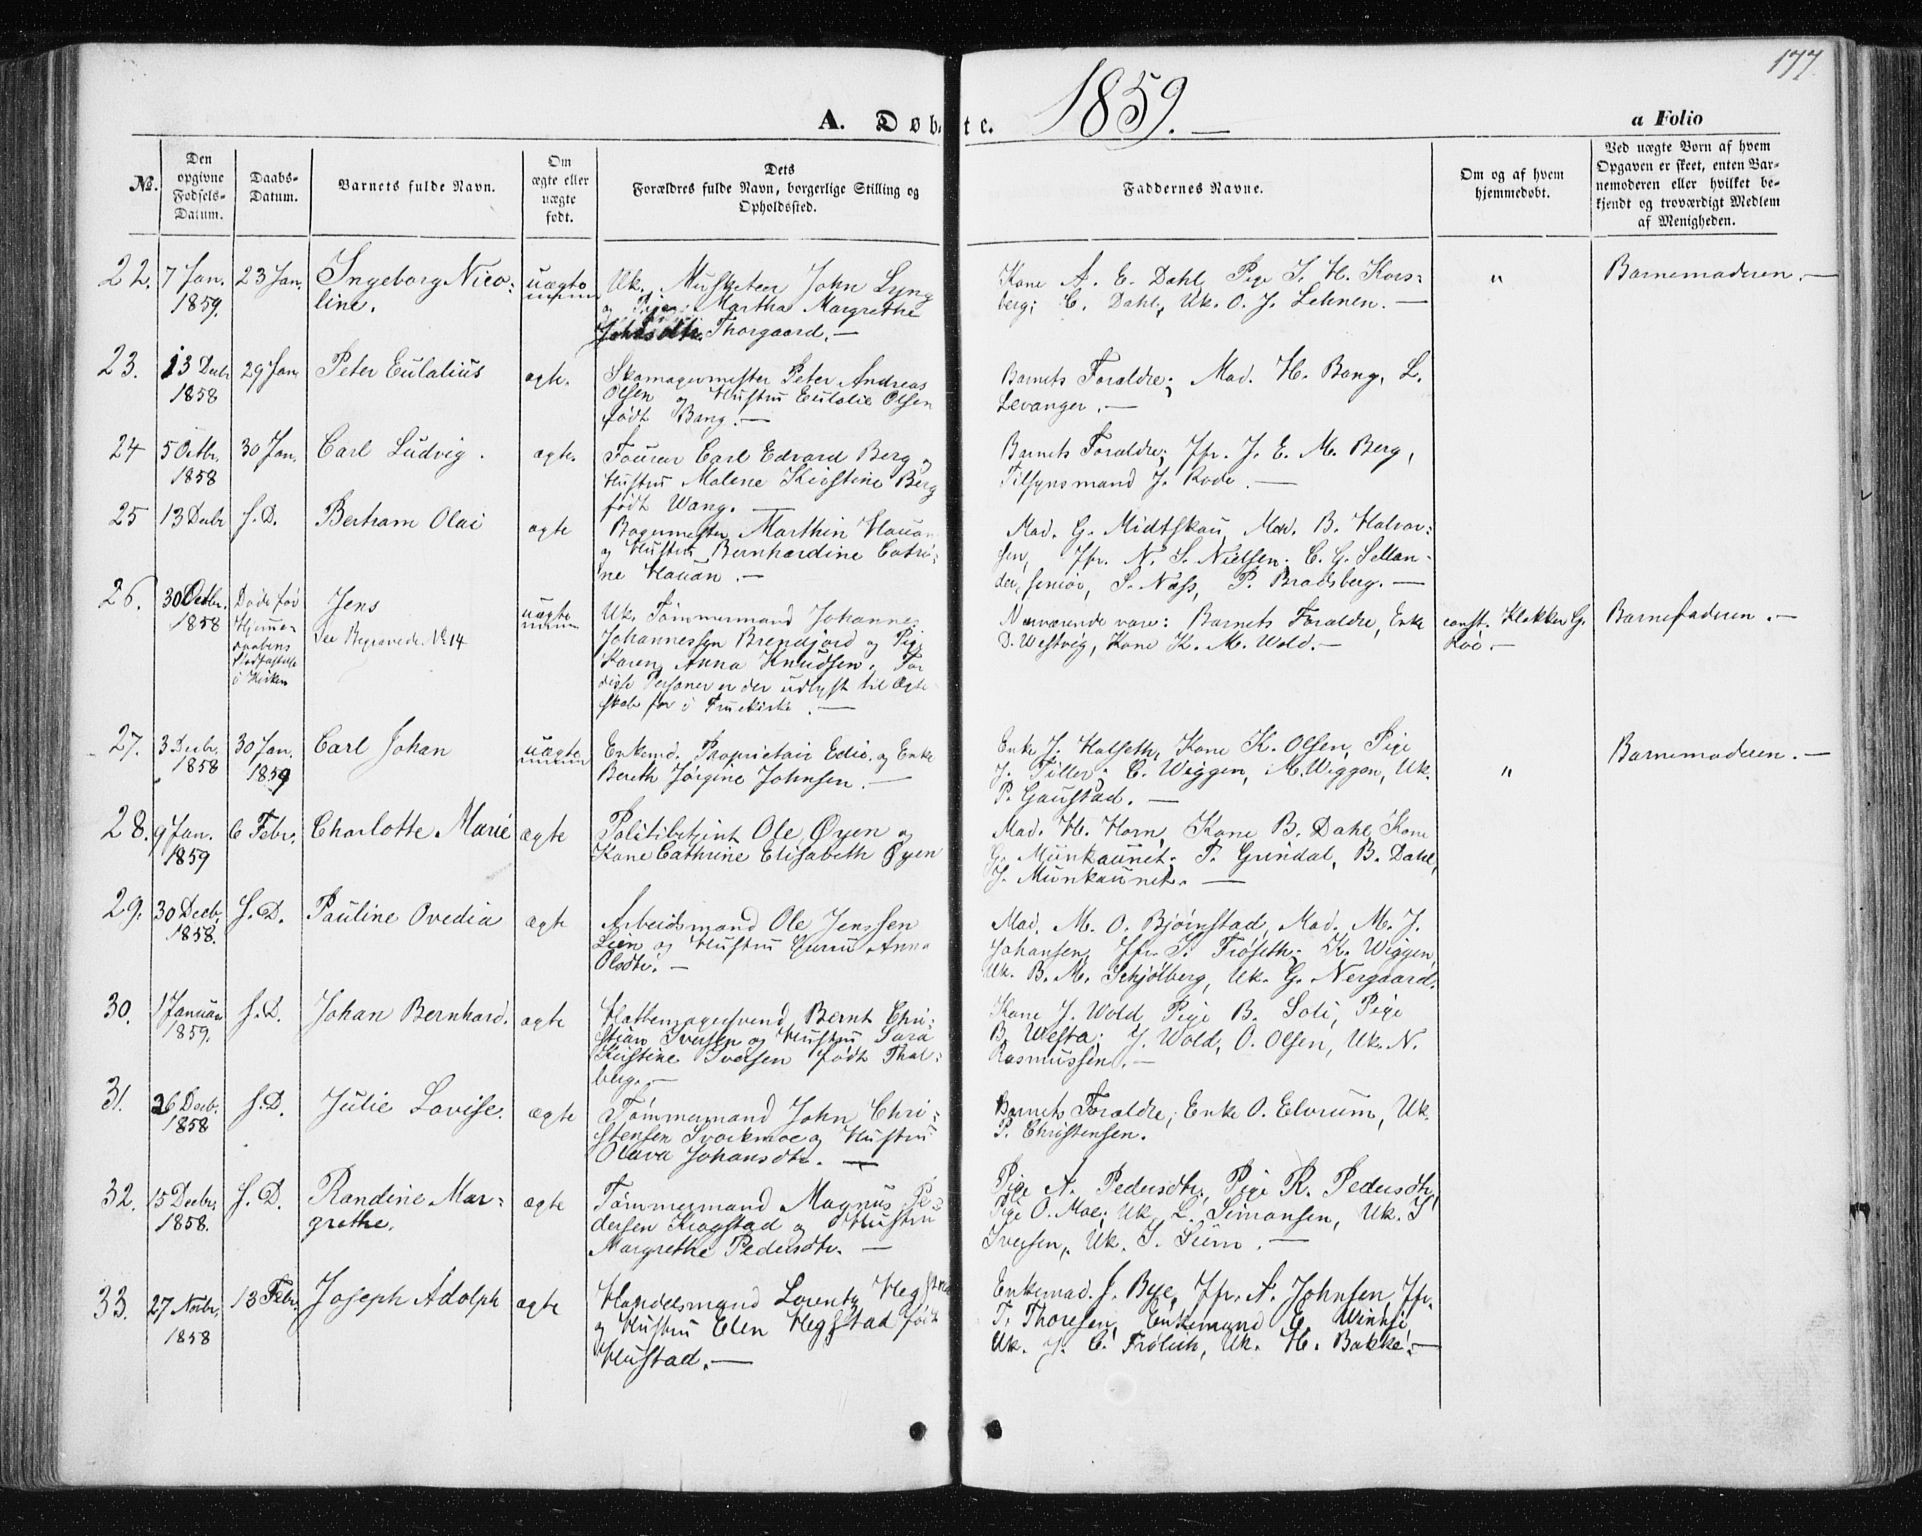 177
A. Døbte. 1859. a Folio
No.
Den opgivne Fødsels-Datum.
Daabs-Datum.
Barnets fulde Navn.
Om ægte eller uægte født.
Dets Forældres fulde Navn, borgerlige Stilling og Opholdssted.
Faddernes Navne.
Om og af hvem hjemmedøbt.
Ved uægte Børn af hvem Opgaven er skeet, enten Barnemoderen eller hvilket bekjendt og troværdigt Medlem af Menigheden.
22. 7 Jan. 1859. 23 Jan. Ingeborg Nico-
line.
uægte
Uk. Musketeer John Lyng
og Pige Martha Margrethe
Thorgaard.
Kone A. E. Dahl, Pige S. H. Kors-
berg; C. Dahl, Uk. O. J. Lehnen.
"
Barnemoderen.
23. 13 Decbr 1858 29 Jan Peter Eulalius
ægte.
Skomagermester Peter Andreas
Olsen og Hustru Eulalie Olsen
født Bang.
Barnets Forældre; Mad. H. Bang, L.
Levanger.
24 5 Octbr. 1858 30 Jan. Carl Ludvig.
ægte.
Fourer Carl Edvard Berg og
Hustru Malene Kirstine Berg
født Wang.
Barnets Forældre; Jfr. J. E. M. Berg,
Tilsynsmand J. Rode.
25 13 Decbr s. D. Bertram Olai
ægte
Bagermester Marthin Hauan
og Hustru Bernhardine Catri-
ne Hauan.
Mad. G. Midtskau, Mad. B. Halvor-
sen, Jfr. N. S. Nielsen; C. G. Sellan-
der, senior, S. Næss, P. Bradsberg.
26. 30 Octbr. 1858
Døde før
Hjemme-
daabens
Stadfæstelse
i Kirken
Jens
See Begravede No 14
uægte
Uk. Tømmermand Johannes
Johannessen Brendjord og Pige
Karen Anna Knudsen. For
disse Personer er der udlyst til Ægte-
skab før i Fruekirke.
Nærværende vare: Barnets Forældre, Enke
D. Westvig, Kone K. M. Wold.
const. Klokker G.
Röe.
Barnefaderen.
27. 3 Decbr. 1858 30 Jan. 1859 Carl Johan
uægte
Enkemd. Proprietair Edie og Enke
Bereth Jørgine Johnsen.
Enke J. Halseth, Kone K. Olsen, Pige
J. Tiller; C. Wiggen, M. Wiggen, Uk.
P. Gaustad.
"
Barnemoderen.
28. 9 Jan. 1859 6 Febr. Charlotte Marie
ægte
Politibetjent Ole Øyen og
Kone Cathrine Elisabeth Øyen
Mad. H. Horn, Kone B. Dahl, Kone
G. Munkaunet; T. Grindal, B. Dahl,
J. Munkaunet.
29. 30 Decb. 1858. s. D. Pauline Ovedia
ægte
Arbeidsmand Ole Jenssen
Lien og Hustru Gurru Anna
Olsdtr.
Mad. M. O. Bjørnstad, Mad. M. J.
Johansen, Jfr. S. Frøseth; K. Wiggen,
Uk. B. M. Schjølberg, Uk. G. Nergaard.
30. 1 Januar 1859. s. D. Johan Bernhard.
ægte
Hattemagersvend Bernt Chri-
stian Iversen og Hustru Sara
Kirstine Iversen født Thal-
berg.
Kone J. Wold, Pige B. Soli, Pige
B. Westa; J. Wold, O. Olsen, Uk. N.
Rasmussen.
31. 26 Decb. 1858 s. D. Julie Lovise.
ægte
Tømmermand John Chri-
stensen Svorkmoe og Hustru
Olava Johansdtr.
Barnets Forældre; Enke O. Elvrum, Uk.
P. Christensen.
32. 15 Decbr. 1858. s. D. Randine Mar-
grethe.
ægte
Tømmermand Magnus Pe-
dersen Krogstad og Hustru
Margrethe Pedersdtr.
Pige A. Pedersdtr, Pige R. Pedersdtr,
Pige O. Moe; Uk. L. Simonsen, Uk. I
Iversen, Uk. I. Siem.
33. 27 Novbr. 1858 13 Febr. Joseph Adolph
ægte
Handelsmand Lorentz Hegstad
og Hustru Elen Hegstad født
Hustad.
Enkemad. J. Bye, Jfr. A. Johnsen, Jfr.
T. Thoresen, Enkemand E. Wintsi
Uk. J. C. Frølich, Uk. H. Bakke.